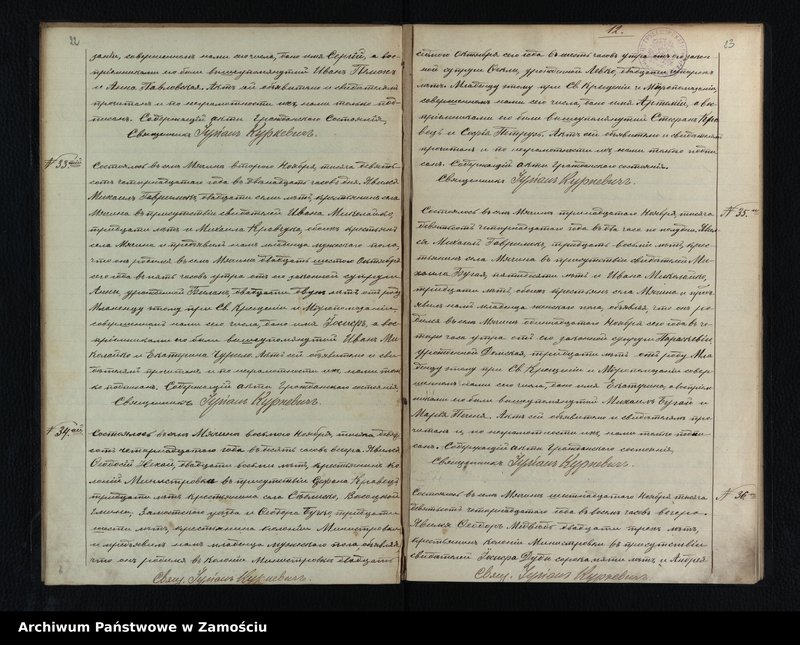 22
заніи, совершенномъ нами сего числа, дано имя Сергій, а вос-
пріемниками его были вышеупомянутый Иванъ
и Анна Павловская. Актъ сей объявителю и свидѣтелямъ
прочитанъ и по неграмотности ихъ нами только под-
писанъ. Содержащій акты Гражданскаго Состоянія,
Священникъ Куркевичъ.
№ 33.
Состоялось въ селѣ Мячина второго Ноября, тысяча девять-
сотъ четырнадцатаго года въ двѣнадцать часовъ дня. Явился
Михаилъ Гаврилюкъ, лѣтъ, крестьянинъ села
Мячина въ присутствіи свидѣтелей Ивана Миколайко,
тридцати лѣтъ и Михаила обоихъ крестьянъ
села Мячина и предъявилъ намъ младенца мужескаго пола,
что онъ родился въ селѣ Мячина двадцать шестого Октября
сего года въ пять часовъ утра отъ его законной супруги
Анны, урожденной лѣтъ отъ роду
Младенцу этому при Св. Крещеніи и Мѵропомазаніи,
совершенномъ нами сего числа, дано имя Іосифъ, а вос-
пріемниками его были вышеупомянутый Иванъ Ми-
колайко и Екатерина Актъ сей объявителю и сви-
дѣтелямъ прочитанъ и по неграмотности ихъ нами толь-
ко подписанъ. Содержащій акты Гражданскаго состоянія
Священникъ Куркевичъ.
№ 34.
Состоялось въ селѣ Мячина восьмого Ноября, тысяча девять-
сотъ четырнадцатаго года въ десять часовъ вечера. Явился
Ѳеодосій двадцати восьми лѣтъ, крестьянинъ ко-
лоніи Министровка въ присутствіи Кравецъ
тридцати лѣтъ крестьянина села Высоцкой
гмины, Замостскаго уѣзда и Ѳеодора тридцати
шести лѣтъ, крестьянина колоніи Министровки
и предъявилъ намъ младенца мужескаго пола, объявляя
что онъ родился въ колоніи Министровка двадцать
Свящ. Куркевичъ.
12.
23
Октября сего года въ шесть часовъ утра отъ его закон-
ной супруги Ѳеклы, урожденной двадцати
лѣтъ. Младенцу этому при Св. Крещеніи и Мѵропомазаніи,
совершенномъ нами сего числа, дано имя а вос-
пріемниками его были вышеупомянутый Кра-
вецъ и Софія Петрукъ. Актъ сей объявителю и свидѣтелямъ
прочитанъ и по неграмотности ихъ нами только подпи-
санъ. Содержащій акты Гражданскаго состоянія.
Священникъ Куркевичъ.
№ 35.
Состоялось въ селѣ Мячинѣ тринадцатаго Ноября, тысяча
девятьсотъ четырнадцатаго года въ два часа по полудни. Явил-
ся Михаилъ Гаврилюкъ, тридцать восьми лѣтъ, крес-
тьянинъ села Мячина въ присутствіи свидѣтелей Ми-
хаила Бугая, пятидесяти лѣтъ и Ивана Миколайко,
тридцати лѣтъ, обоихъ крестьянъ села Мячина и предъ-
явилъ намъ младенца женскаго пола, объявляя, что онъ ро-
дился въ селѣ Мячина одиннадцатаго Ноября сего года въ че-
тыре часа утра отъ его законной супруги Параскевіи,
урожденной тридцати лѣтъ отъ роду. Мла-
денцу этому при Св. Крещеніи и Мѵропомазаніи совер-
шенномъ нами сего числа, дано имя Екатерина, а воспріем-
никами его были вышеупомянутый Михаилъ Бугай и
Марія Актъ сей объявителю и свидѣтелямъ про-
читанъ и по неграмотности ихъ нами только подпи-
санъ. Содержащій акты Гражданскаго состоянія,
Священникъ Куркевичъ.
№ 36.
Состоялось въ селѣ Мячинѣ шестнадцатаго Ноября тысяча
девятьсотъ четырнадцатаго года въ восемь часовъ вечера.
Явился Ѳеодоръ двадцати трехъ лѣтъ,
крестьянинъ колоніи Министровки въ присутствіи
свидѣтелей Іосифа Дуды сорока пяти лѣтъ и Андрея
Свящ. Куркевичъ.
Archiwum Państwowe w Zamościu